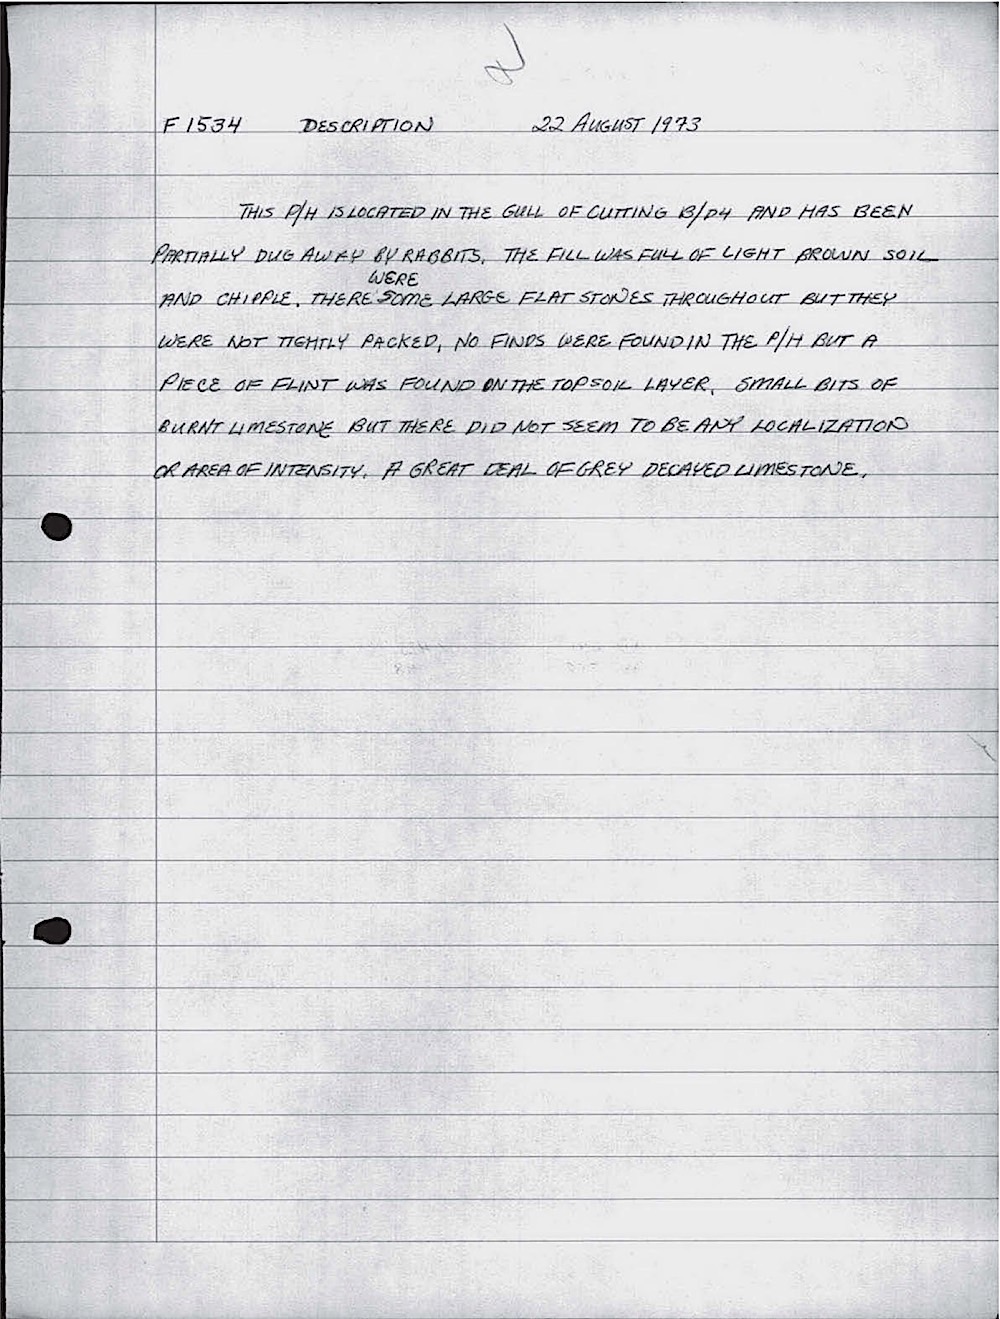 F 1534 DESCRIPTION 22 AUGUST 1973
THIS P/H IS LOCATED IN THE GULL OF CUTTING B/D4 AND HAS BEEN
PARTIALLY DUG AWAY BY RABBITS. THE FILL WAS FULL OF LIGHT BROWN SOIL
WERE
AND CHIPPLE. THERE SOME LARGE FLAT STONES THROUGHOUT BUT THEY
WERE NOT TIGHTLY PACKED, NO FINDS WERE FOUND IN THE P/H BUT A
PIECE OF FLINT WAS FOUND ON THE TOPSOIL LAYER. SMALL BITS OF
BURNT LIMESTONE BUT THERE DID NOT SEEM TO BE ANY LOCALIZATION
OR AREA OF INTENSITY. A GREAT DEAL OF GREY DECAYED LIMESTONE.